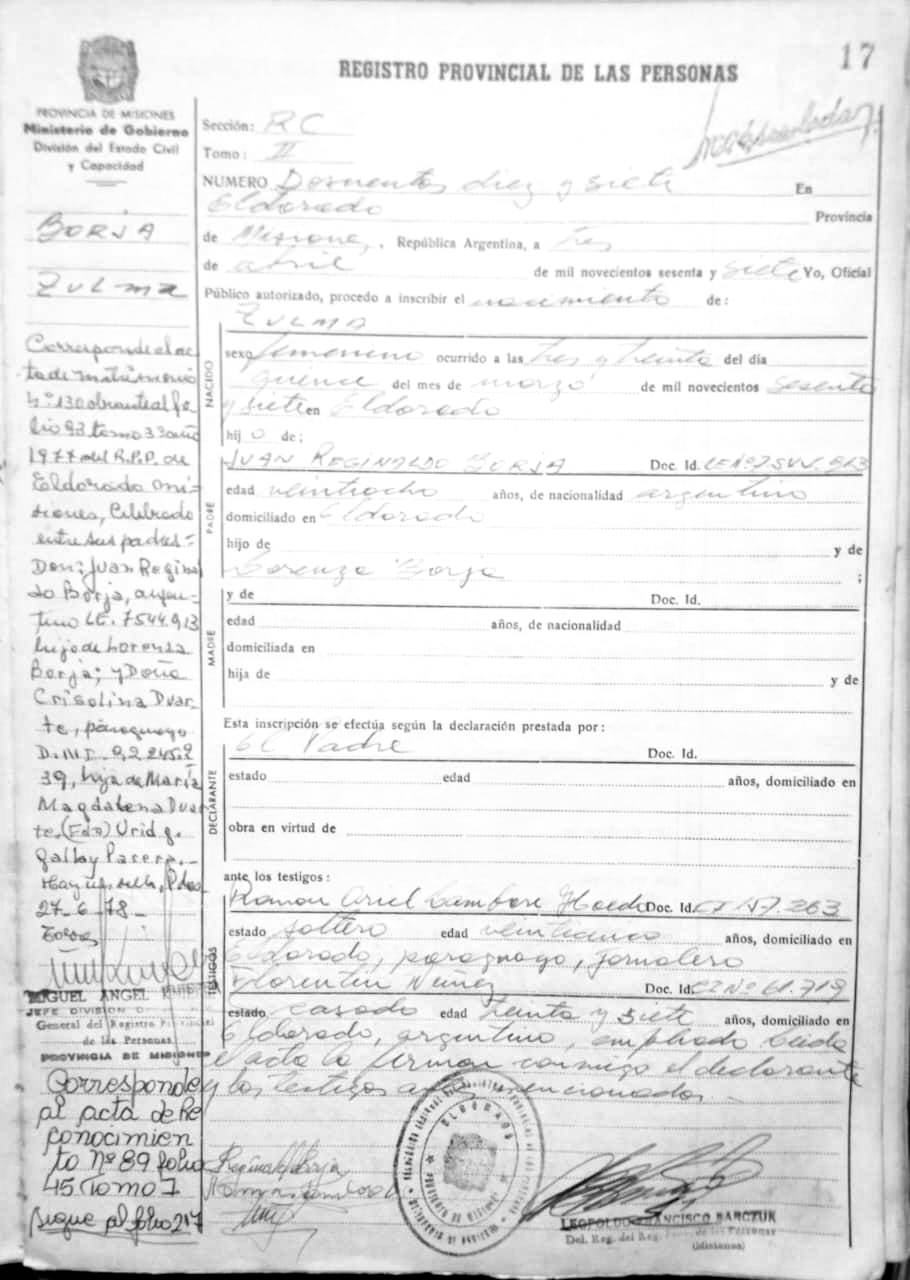 17
REGISTRO PROVINCIAL DE LAS PERSONAS
PROVINCIA DE MISIONES
Ministerio de Gobierno
División del Estado Civil
y Capacidad
BORJA
ZULMA
Corresponde el ac
ta de matrimonio
Nº 130 obrante al fo
lio 93 tomo 3º año
1977 del R.P.P. de
Eldorado Mi-
siones, Celebrado
entre sus padres:
Don: Juan Regina
do Borja, argen-
tino LE. 7544913
hijo de Lorenza
Borja; y Doña
Crisolina Duar-
te, paraguaya
D.N.I. 92.245.2
39, hija de María
Magdalena Duar
te. (Fdo)
27-6-78-
MIGUEL ANGEL
JEFE DIVISION
General del Registro Provincial
de las Personas
PROVINCIA DE MISIONES
Corresponde
al acta de Re
conocimien
to Nº 89 folio
45 Tomo I
Sigue al folio 217
Sección: RC
Tomo: II
NUMERO Doscientos diez y siete En
Eldorado Provincia
de Misiones, República Argentina, a tres
de abril de mil novecientos sesenta y siete Yo, Oficial
Público autorizado, procedo a inscribir el nacimiento de:
NACIDO
ZULMA
sexo femenino ocurrido a las tres y treinta del día
quince del mes de marzo de mil novecientos sesenta
y siete en Eldorado
hijo de;
PADRE
JUAN REGINALDO BORJA Doc. Id. LE Nº 7.544.913
edad veintiocho años, de nacionalidad argentino
domiciliado en Eldorado
hijo de y de
Lorenza Borja ;
MADRE
y de Doc. Id.
edad años, de nacionalidad
domiciliada en
hija de y de
Esta inscripción se efectúa según la declaración prestada por:
DECLARANTE
El Padre Doc. Id.
estado edad años, domiciliado en
obra en virtud de
ante los testigos:
TESTIGOS
Ramon Ariel Doc. Id. CI Nº 7.263
estado soltero edad veinticinco años, domiciliado en
Eldorado, paraguayo, jornalero
Florentin Nuñez Doc. Id. CI Nº 61.719
estado casado edad treinta y siete años, domiciliado en
Eldorado, argentino, empleado Leida
el acta la firman conmigo el declarante
y los testigos antes mencionados.-
Reginaldo Borja
ELDORADO
LEOPOLDO FRANCISCO BARCZUK
Del. Reg. del Reg. de las Personas
(Misiones)